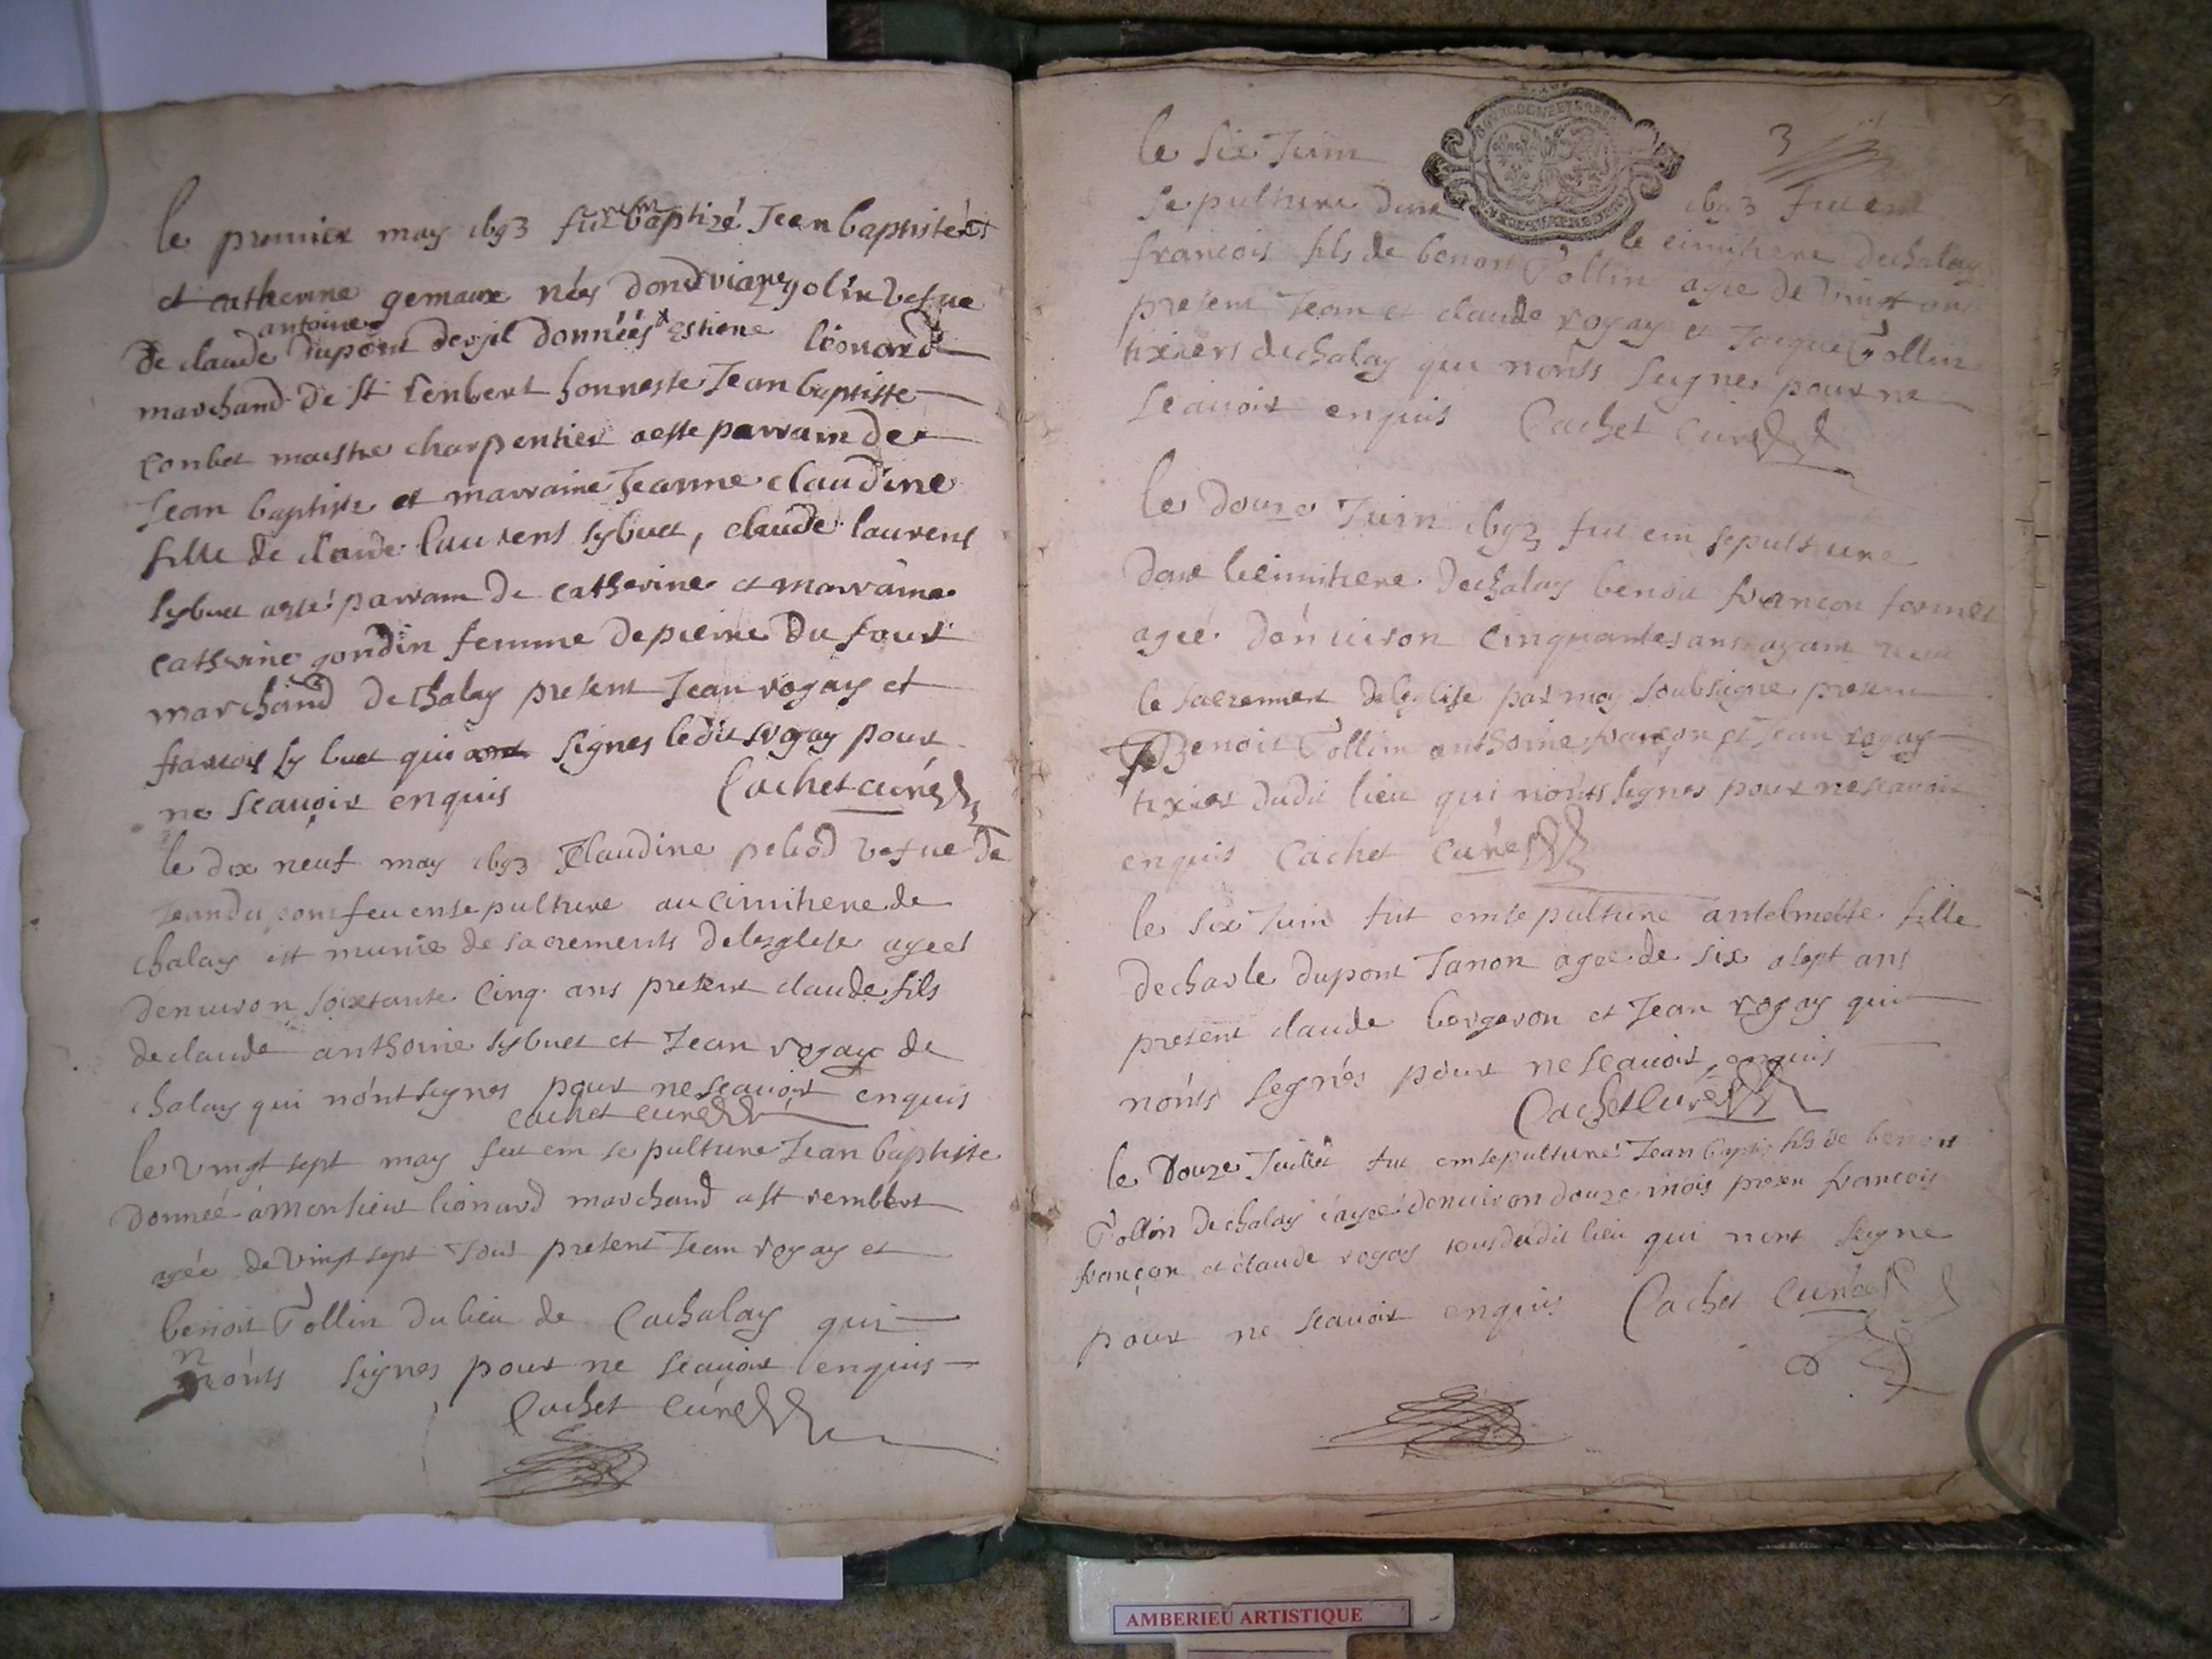 le premier may 1693 furent baptizé Jean baptiste et
et catherine gemaux néés dond viane golin vefue
antoine
de claude dupont desjl donnéés estiene léonard
marchand de st renbert honneste Jean baptiste
conbet maistre charpentier aeste parrain de
Jean baptiste et marraine Jeanne claudine
fille de claude laurens sybuet, claude laurens
sybuet aesté parrain de catherine et marraine
catherine gondin femme de pierre du four
marchand de chalay present Jean rogay et
francois sybuet qui ont signes ledit rogay pour
ne scauoir enquis Cachet curé
le dix neuf may 1693 Claudine vefue de
Jean dupont feu ensepulture au cimitiere de
chalay et munie de sacrements de lesglese agees
denuiron soixante cinq ans present claude fils
de claude anthoine sybuet et Jean rogay de
chalay qui nónt signes pour ne scauoir enquis
Cachet curé
le vingt sept may feu em sepulture Jean baptiste
donneé á monsieur léonard marchand a st rembert
agée de vingt sept Jour present Jean rogay et
benoit Tollin du lieu de Cachalay qui
n
nónts signes pour ne scauoir enquis
Cachet curé
3
le six Juin
sepulture dans 1693 fut em
le cimitiere de chalay
francois fils de benoit Tollin agee de vingt ans
present Jean et claude rogay et Jacque Tollin
tixiers de chalay qui nónts signes pour ne
scauoir enquis Cachet curé
le douze Juin 1693 fut em sepulture
dans le cimitiere de chalay benoit françon
ageé dénuiron cinquantes ans ayant receu
le sacrement de leglise par moy soubsigne present
Benoit Tollin anthoine françon et Jean rogay
tixier dudit lieu qui nónts signes pour ne scauoir
enquis Cachet curé
le six Juin fut emsepulture antelmette fille
de charle dupont Janon agee de six a sept ans
present claude borgeron et Jean rogay qui
nónts segnés pour ne scauoir enquis
Cachet curé
le Douze Juillet fut emsepulturé Jean baptis fils de benoit
Tollin de chalay ageé denuiron douze mois presen francois
françon et claude rogay tous dudit lieu qui nont seigne
pour ne scauoir enquis Cachet curé
AMBERIEU ARTISTIQUE